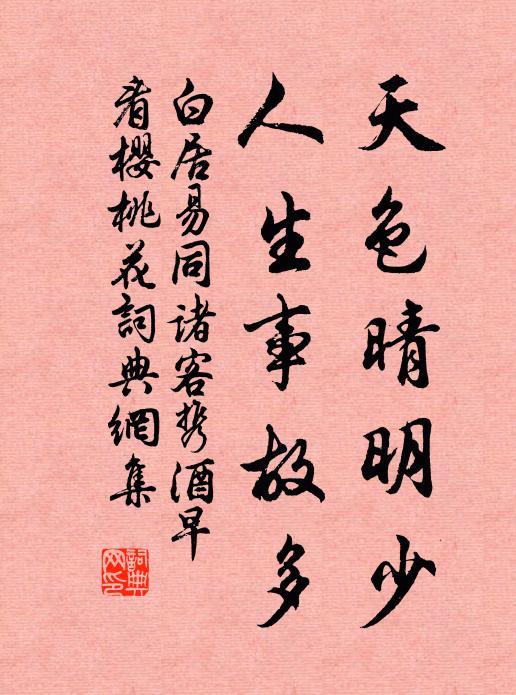 天色晴明少
人生事故多
白居易同諸客携酒早
看櫻桃花詞典網集
詞典
网印